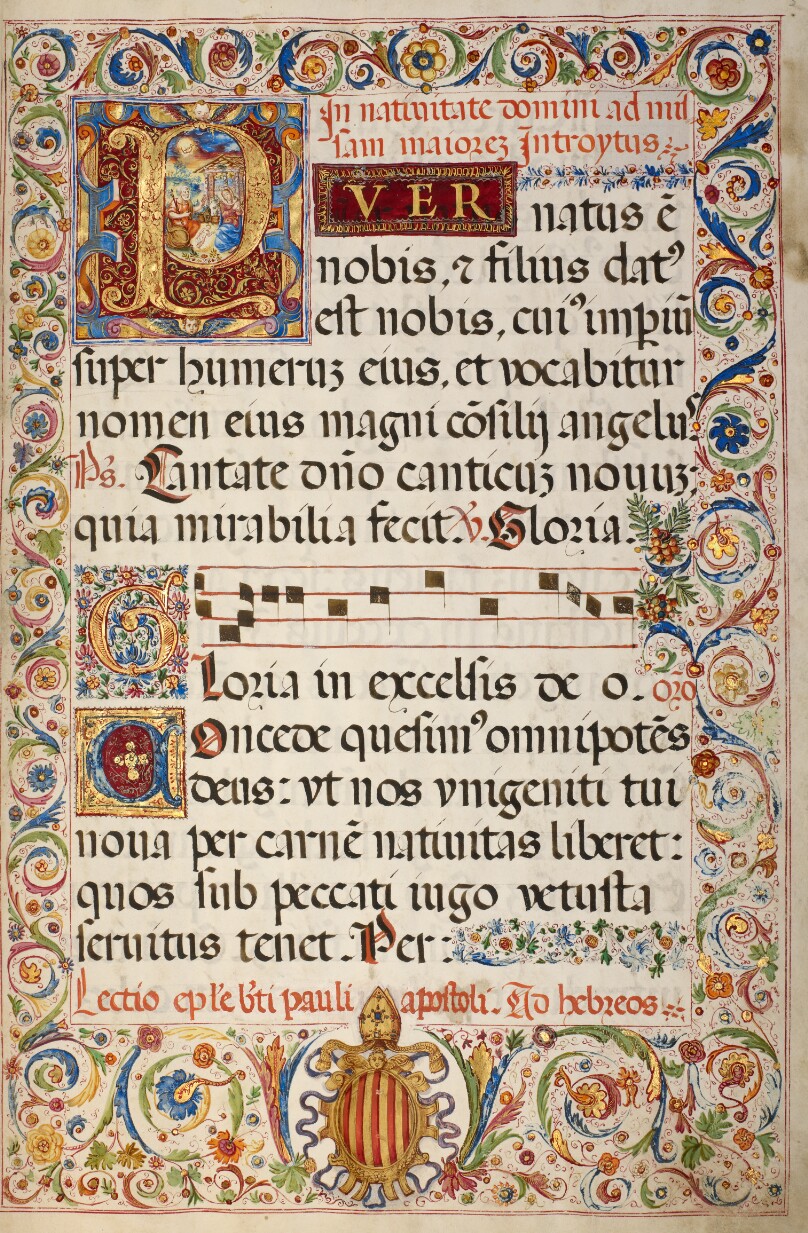 In natiuitate domini ad mis
sam maiorez Introytus
PVER natus ē
nobis, ⁊ filius datꝰ
est nobis, cuiꝰ imꝑiū
super humeruz eius, et vocabitur
nomen eius magni cōsilij angelus.
Ps. Cantate dn̄o canticuz nouuz;
quia mirabilia fecit. V. Gloria.
GLoria in excelsis de o. Oro
COncede quesimꝰ omnipotēs
deus: vt nos vnigeniti tui
noua per carnē natiuitas liberet:
quos sub peccati iugo vetusta
seruitus tenet. Per:
Lectio epl̄e bt̄i pauli apostoli. Ad hebreos